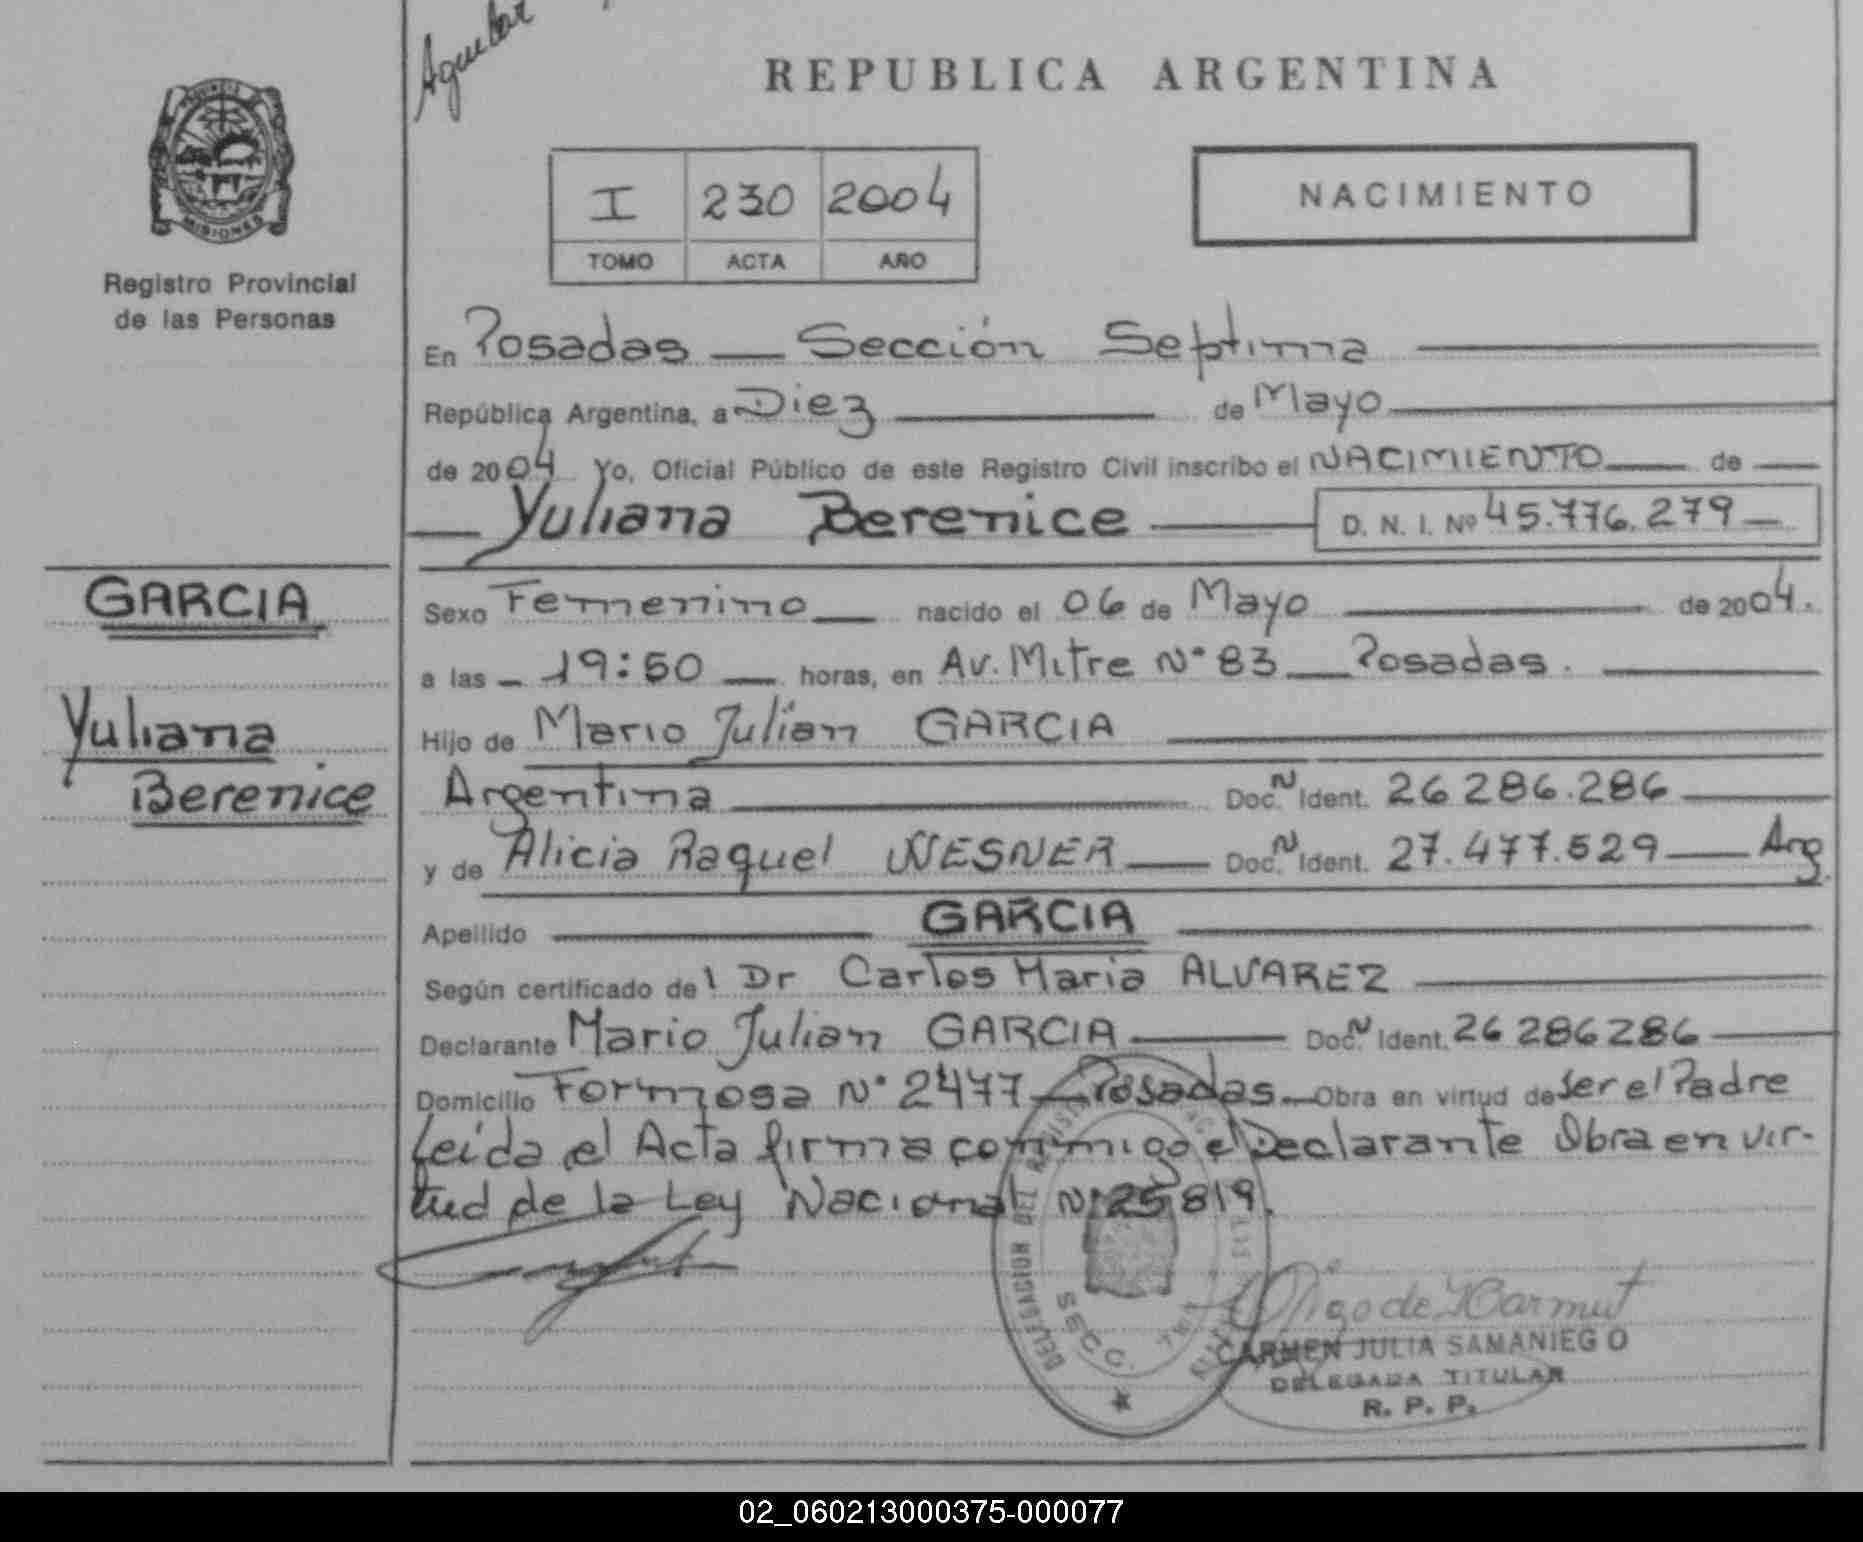 Aguilar
REPUBLICA ARGENTINA
PROVINCIA DE
MISIONES
Registro Provincial
de las Personas
I 230 2004
TOMO ACTA AÑO
NACIMIENTO
En Posadas — Sección Septima
República Argentina, a Diez de Mayo
de 2004 Yo, Oficial Público de este Registro Civil inscribo el NACIMIENTO de
Yuliana Berenice D. N. I. Nº 45.776.279
GARCIA
Yuliana
Berenice
Sexo Femenino nacido el 06 de Mayo de 2004.
a las 19:50 horas, en Av. Mitre N° 83 — Posadas.
Hijo de Mario Julian GARCIA
Argentina Doc. N Ident. 26 286.286
y de Alicia Raquel WESNER Doc. N Ident. 27.477.529 — Arg.
Apellido GARCIA
Según certificado del Dr Carlos Maria ALVAREZ
Declarante Mario Julian GARCIA Doc. N Ident. 26 286 286
Domicilio Formosa N° 2477 — Posadas — Obra en virtud de ser el Padre
Leida el Acta firma conmigo el Declarante Obra en vir-
tud de la Ley Nacional N° 25819.
DELEGACION DEL REGISTRO
SECC.
CARMEN JULIA SAMANIEGO
DELEGADA TITULAR
R. P. P.
02_060213000375-000077